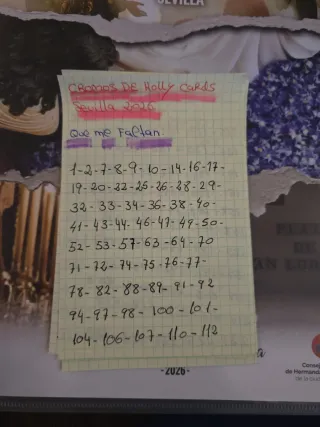 SEVILLA
CROMOS DE Holly Cards
Sevilla 2026
Que me Faltan
1-2-7-8-9-10-14-16-17-
19-20-22-25-26-28-29-
32-33-34-36-38-40-
41-43-44-46-47-49-50-
52-53-57-63-64-70
71-72-74-75-76-77-
78-82-88-89-91-92
94-97-98-100-101-
104-106-107-110-112
-2026-
Consej
de Hermanda